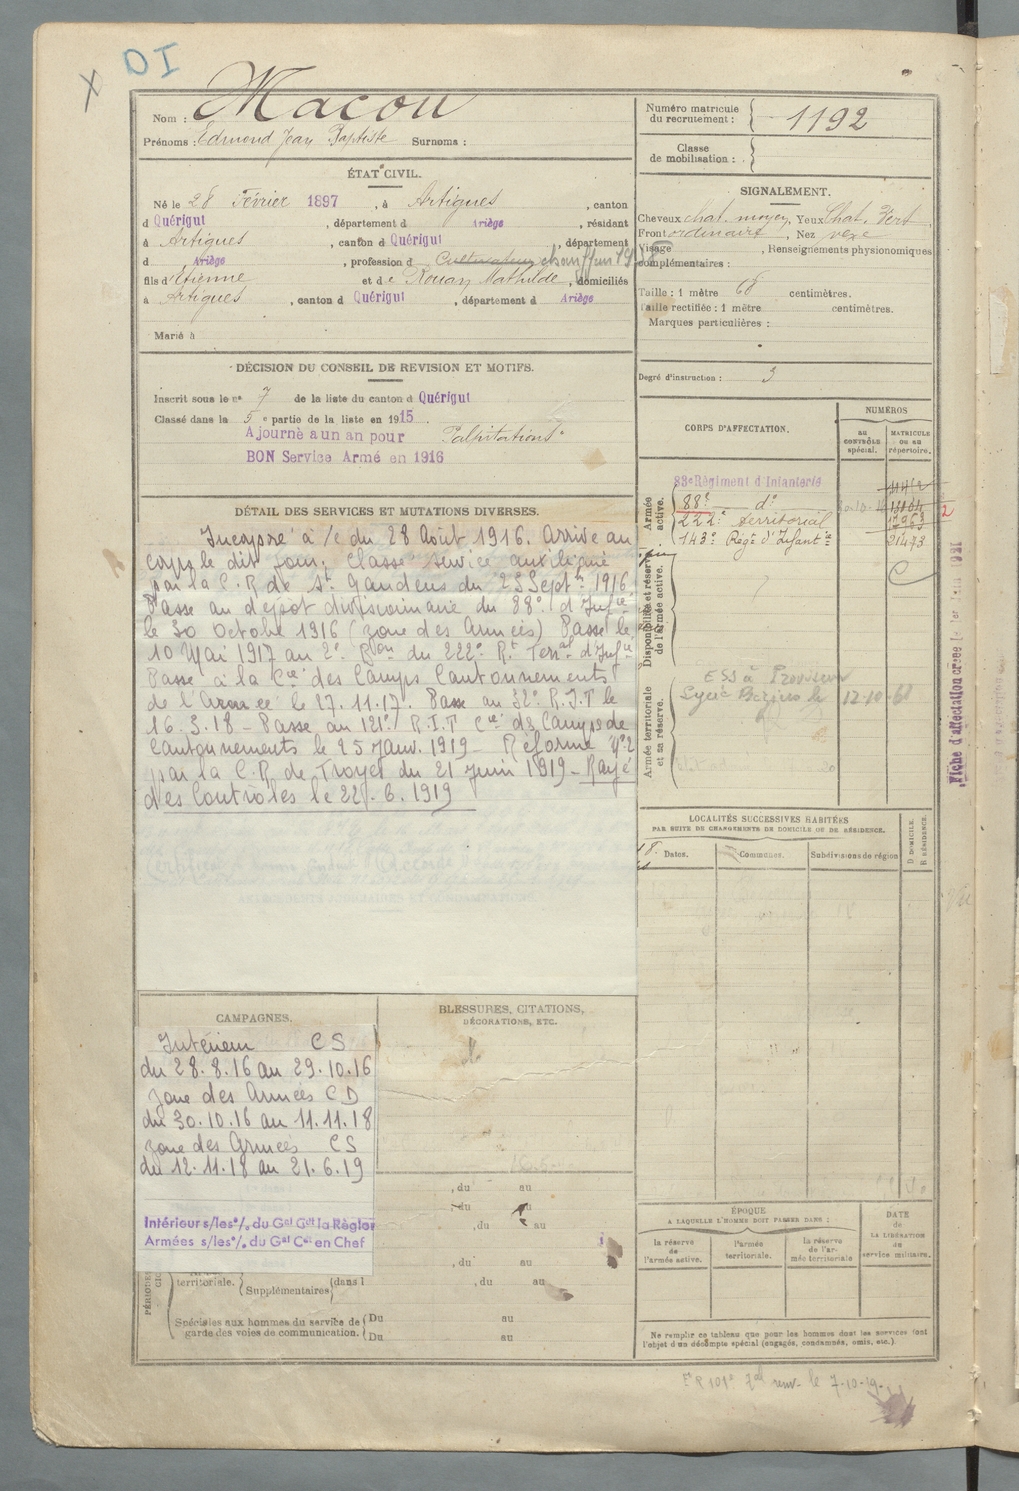 DI
X
Nom : Macou
Prénoms : Edmond Jean Baptiste Surnoms :
Numéro matricule du recrutement : 1192
Classe de mobilisation :
ÉTAT CIVIL.
Né le 28 Février 1897, à Artigues, canton
d Quérigut, département d Ariège, résidant
à Artigues, canton d Quérigut, département
d Ariège, profession d Cultivateur chauffeur
fils d'Etienne et de Rouan Mathilde, domiciliés
à Artigues, canton d Quérigut, département d Ariège
Marié à
SIGNALEMENT.
Cheveux chat. moyen, Yeux Chat. Vert
Front ordinaire, Nez vexe
Visage, Renseignements physionomiques
complémentaires :
Taille : 1 mètre 68 centimètres.
Taille rectifiée : 1 mètre centimètres.
Marques particulières :
Degré d'instruction : 3
DÉCISION DU CONSEIL DE REVISION ET MOTIFS.
Inscrit sous le n° 7 de la liste du canton d Quérigut
Classé dans la 5e partie de la liste en 1915.
Ajourné a un an pour Palpitations
BON Service Armé en 1916
CORPS D'AFFECTATION.
NUMÉROS
AU CONTRÔLE spécial.
MATRICULE OU AU répertoire.
Armée active.
83e Régiment d Infanterie
88e d°
222e territorial
143e Régt d'Infantie 21493
2
Disponibilité et réserve de l'armée active.
Armée territoriale et sa réserve.
12-10-61
Fiche d'affectation créée le 1er
DÉTAIL DES SERVICES ET MUTATIONS DIVERSES.
Incorporé à /c du 28 Août 1916. Arrive au
corps le dit jour. Classé service auxiliaire
par la C.R de St Gaudens du 23 Septre 1916.
Passe au dépôt divisionnaire du 88e d'Infie
le 30 Octobre 1916 (zone des Armées) Passe le
10 Mai 1917 au 2e Bon du 222e Rt Terral d'Infie
Passe à la Cie des Camps Cantonnements
de l'Armée le 27.11.17. Passe au 32e R.I.T le
16.3.18 - Passe au 121e R.I.T Cie des Camps de
Cantonnements le 25 Janv. 1919 - Réformé N°2
par la C.R de Troyes du 21 Juin 1919 - Rayé
des Contrôles le 22.6.1919
ANTÉCÉDENTS JUDICIAIRES ET CONDAMNATIONS.
LOCALITÉS SUCCESSIVES HABITÉES
PAR SUITE DE CHANGEMENTS DE DOMICILE OU DE RÉSIDENCE.
Dates.
Communes.
Subdivisions de région
D DOMICILE.
R RÉSIDENCE.
CAMPAGNES.
Intérieur CS
du 28.8.16 au 29.10.16
zone des Armées CD
du 30.10.16 au 11.11.18
zone des Armées CS
du 12.11.18 au 21.6.19
Intérieur s/les°/. du Gal Cdt la Région
Armées s/les°/. du Gal Ct en Chef
BLESSURES, CITATIONS,
DÉCORATIONS, ETC.
, du au
, du au
, du au
, du au
territoriale. Supplémentaires dans l , du au
Spéciales aux hommes du service de garde des voies de communication.
Du au
Du au
ÉPOQUE
A LAQUELLE L'HOMME DOIT PASSER DANS :
la réserve de l'armée active.
l'armée territoriale.
la réserve de l'armée territoriale
DATE de LA LIBÉRATION du service militaire.
Ne remplir ce tableau que pour les hommes dont les services font
l'objet d'un décompte spécial (engagés, condamnés, omis, etc.).
le 7-10-19